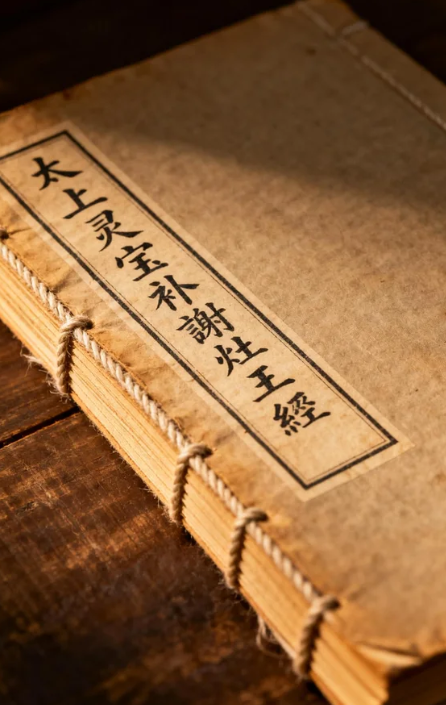 太上灵宝补謝灶王經